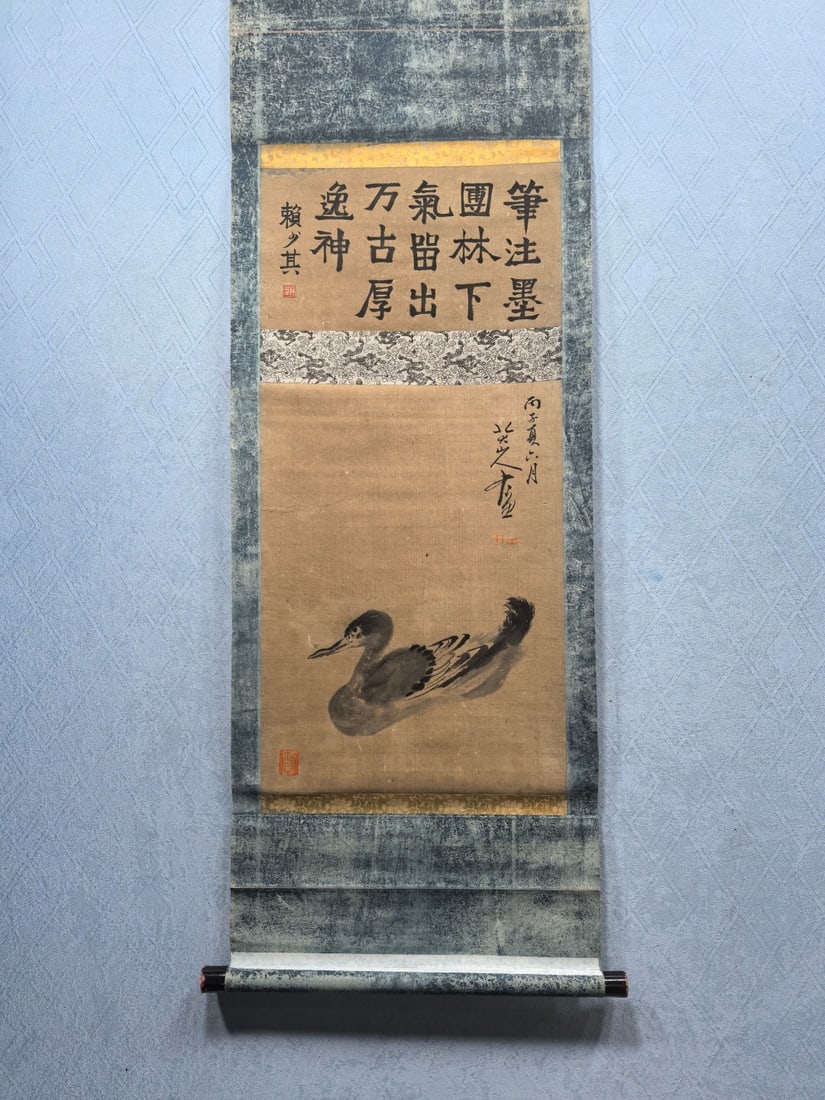 筆注墨
團林下
氣留出
万古厚
逸神
賴少其
丙子夏六月
八大山人畫